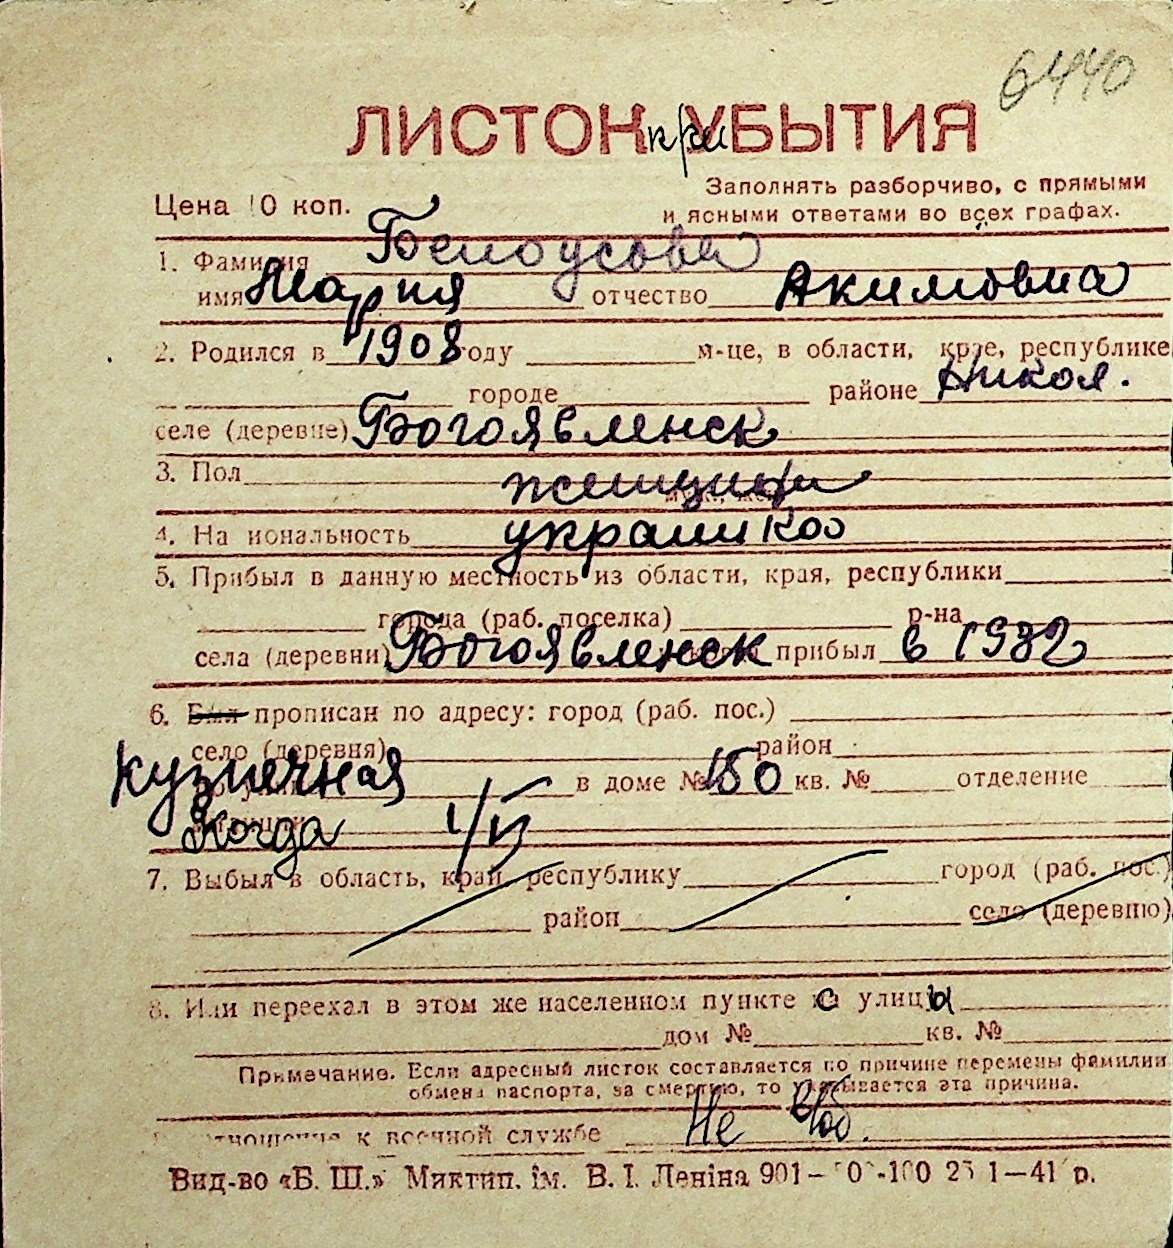 6440
ЛИСТОК при УБЫТИЯ
Цена 10 коп.
Заполнять разборчиво, с прямыми
и ясными ответами во всех графах.
1. Фамилия Белоусова
имя Мария отчество Акимовна
2. Родился в 1908 году м-це, в области, крае, республике
городе районе Никол.
селе (деревне) Богоявленск
3. Пол женщин
4. Национальность украинка
5. Прибыл в данную местность из области, края, республики
города (раб. поселка) р-на
села (деревни) Богоявленск прибыл в 1932
6. Был прописан по адресу: город (раб. пос.)
село (деревня) район
Кузнечная в доме № 150 кв. № отделение
Когда 1/IV
7. Выбыл в область, край, республику город (раб. пос.)
район село (деревню)
8. Или переехал в этом же населенном пункте с улицы
дом № кв. №
Примечание. Если адресный листок составляется по причине перемены фамилии
обмена паспорта, за смертью, то указывается эта причина.
отношение к военной службе Не воб.
Вид-во «Б. Ш.» Миктип. ім. В. І. Леніна 901– 1–41 р.